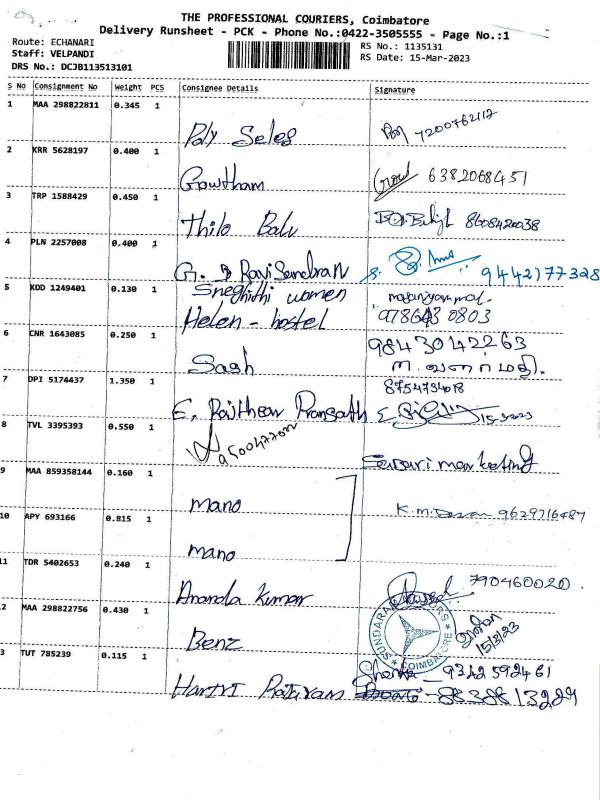 THE PROFESSIONAL COURIERS, Coimbatore
Delivery Runsheet - PCK - Phone No.:0422-3505555 - Page No.:1
Route: ECHANARI
Staff: VELPANDI
DRS No.: DCJB113513101
RS No.: 1135131
RS Date: 15-Mar-2023
S No Consignment No Weight PCS Consignee Details Signature
1 MAA 298822811 0.345 1
Poly Seles 7200762112
2 KRR 5628197 0.400 1
Gowtham 6382068451
3 TRP 1588429 0.450 1
Thilo Balu 8608420038
4 PLN 2257008 0.400 1
G. Ravi 9442177328
5 KOD 1249401 0.130 1
Sneghithi women
Helen - hostel 9786430803
6 CNR 1643085 0.250 1
Sash 9843042263
7 DPI 5174437 1.350 1
8754734018
E. 15-3-2023
8 TVL 3395393 0.550 1
marketing
9 MAA 859358144 0.160 1
mano
K.M. 9629716487
10 APY 693166 0.815 1
mano
11 TDR 5402653 0.240 1
Ananda Kumar 790460020.
2 MAA 298822756 0.430 1
Benz
COIMBATORE
15/3/23
3 TUT 785239 0.115 1
9342592461
8838813229